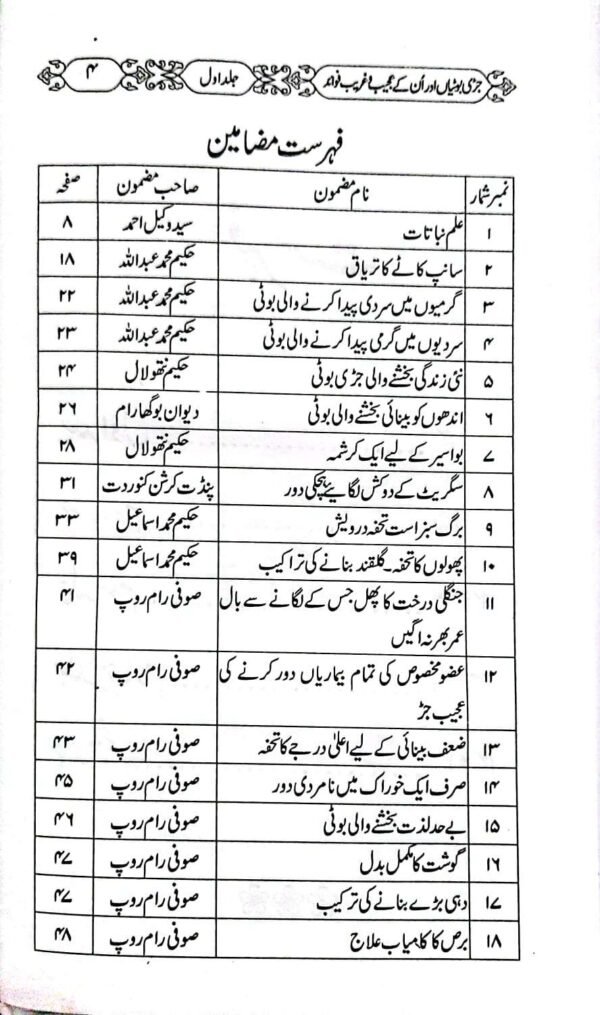 جڑی بوٹیاں اور اُن کے عجیب و غریب فوائد جلد اول ۴
فہرست مضامین
نمبر شمار نام مضمون صاحب مضمون صفحہ
۱ علم نباتات سید وکیل احمد ۸
۲ سانپ کاٹے کا تریاق حکیم محمد عبداللہ ۱۸
۳ گرمیوں میں سردی پیدا کرنے والی بوٹی حکیم محمد عبداللہ ۲۲
۴ سردیوں میں گرمی پیدا کرنے والی بوٹی حکیم محمد عبداللہ ۲۳
۵ نئی زندگی بخشنے والی جڑی بوٹی حکیم نتھو لال ۲۴
۶ اندھوں کو بینائی بخشنے والی بوٹی دیوان بوگھا رام ۲۶
۷ بواسیر کے لیے ایک کرشمہ حکیم نتھو لال ۲۸
۸ سگریٹ کے دو کش لگائیے ہچکی دور پنڈت کرشن کنور دت ۳۱
۹ برگ سبز است تحفہ درویش حکیم محمد اسماعیل ۳۳
۱۰ پھولوں کا تحفہ۔ گلقند بنانے کی تراکیب حکیم محمد اسماعیل ۳۹
۱۱ جنگلی درخت کا پھل جس کے لگانے سے بال صوفی رام روپ ۴۱
عمر بھر نہ اگیں
۱۲ عضو مخصوص کی تمام بیماریاں دور کرنے کی صوفی رام روپ ۴۲
عجیب جڑ
۱۳ ضعف بینائی کے لیے اعلیٰ درجے کا تحفہ صوفی رام روپ ۴۳
۱۴ صرف ایک خوراک میں نامردی دور صوفی رام روپ ۴۵
۱۵ بے حد لذت بخشنے والی بوٹی صوفی رام روپ ۴۶
۱۶ گوشت کا مکمل بدل صوفی رام روپ ۴۷
۱۷ دہی بڑے بنانے کی ترکیب صوفی رام روپ ۴۷
۱۸ برص کا کامیاب علاج صوفی رام روپ ۴۸